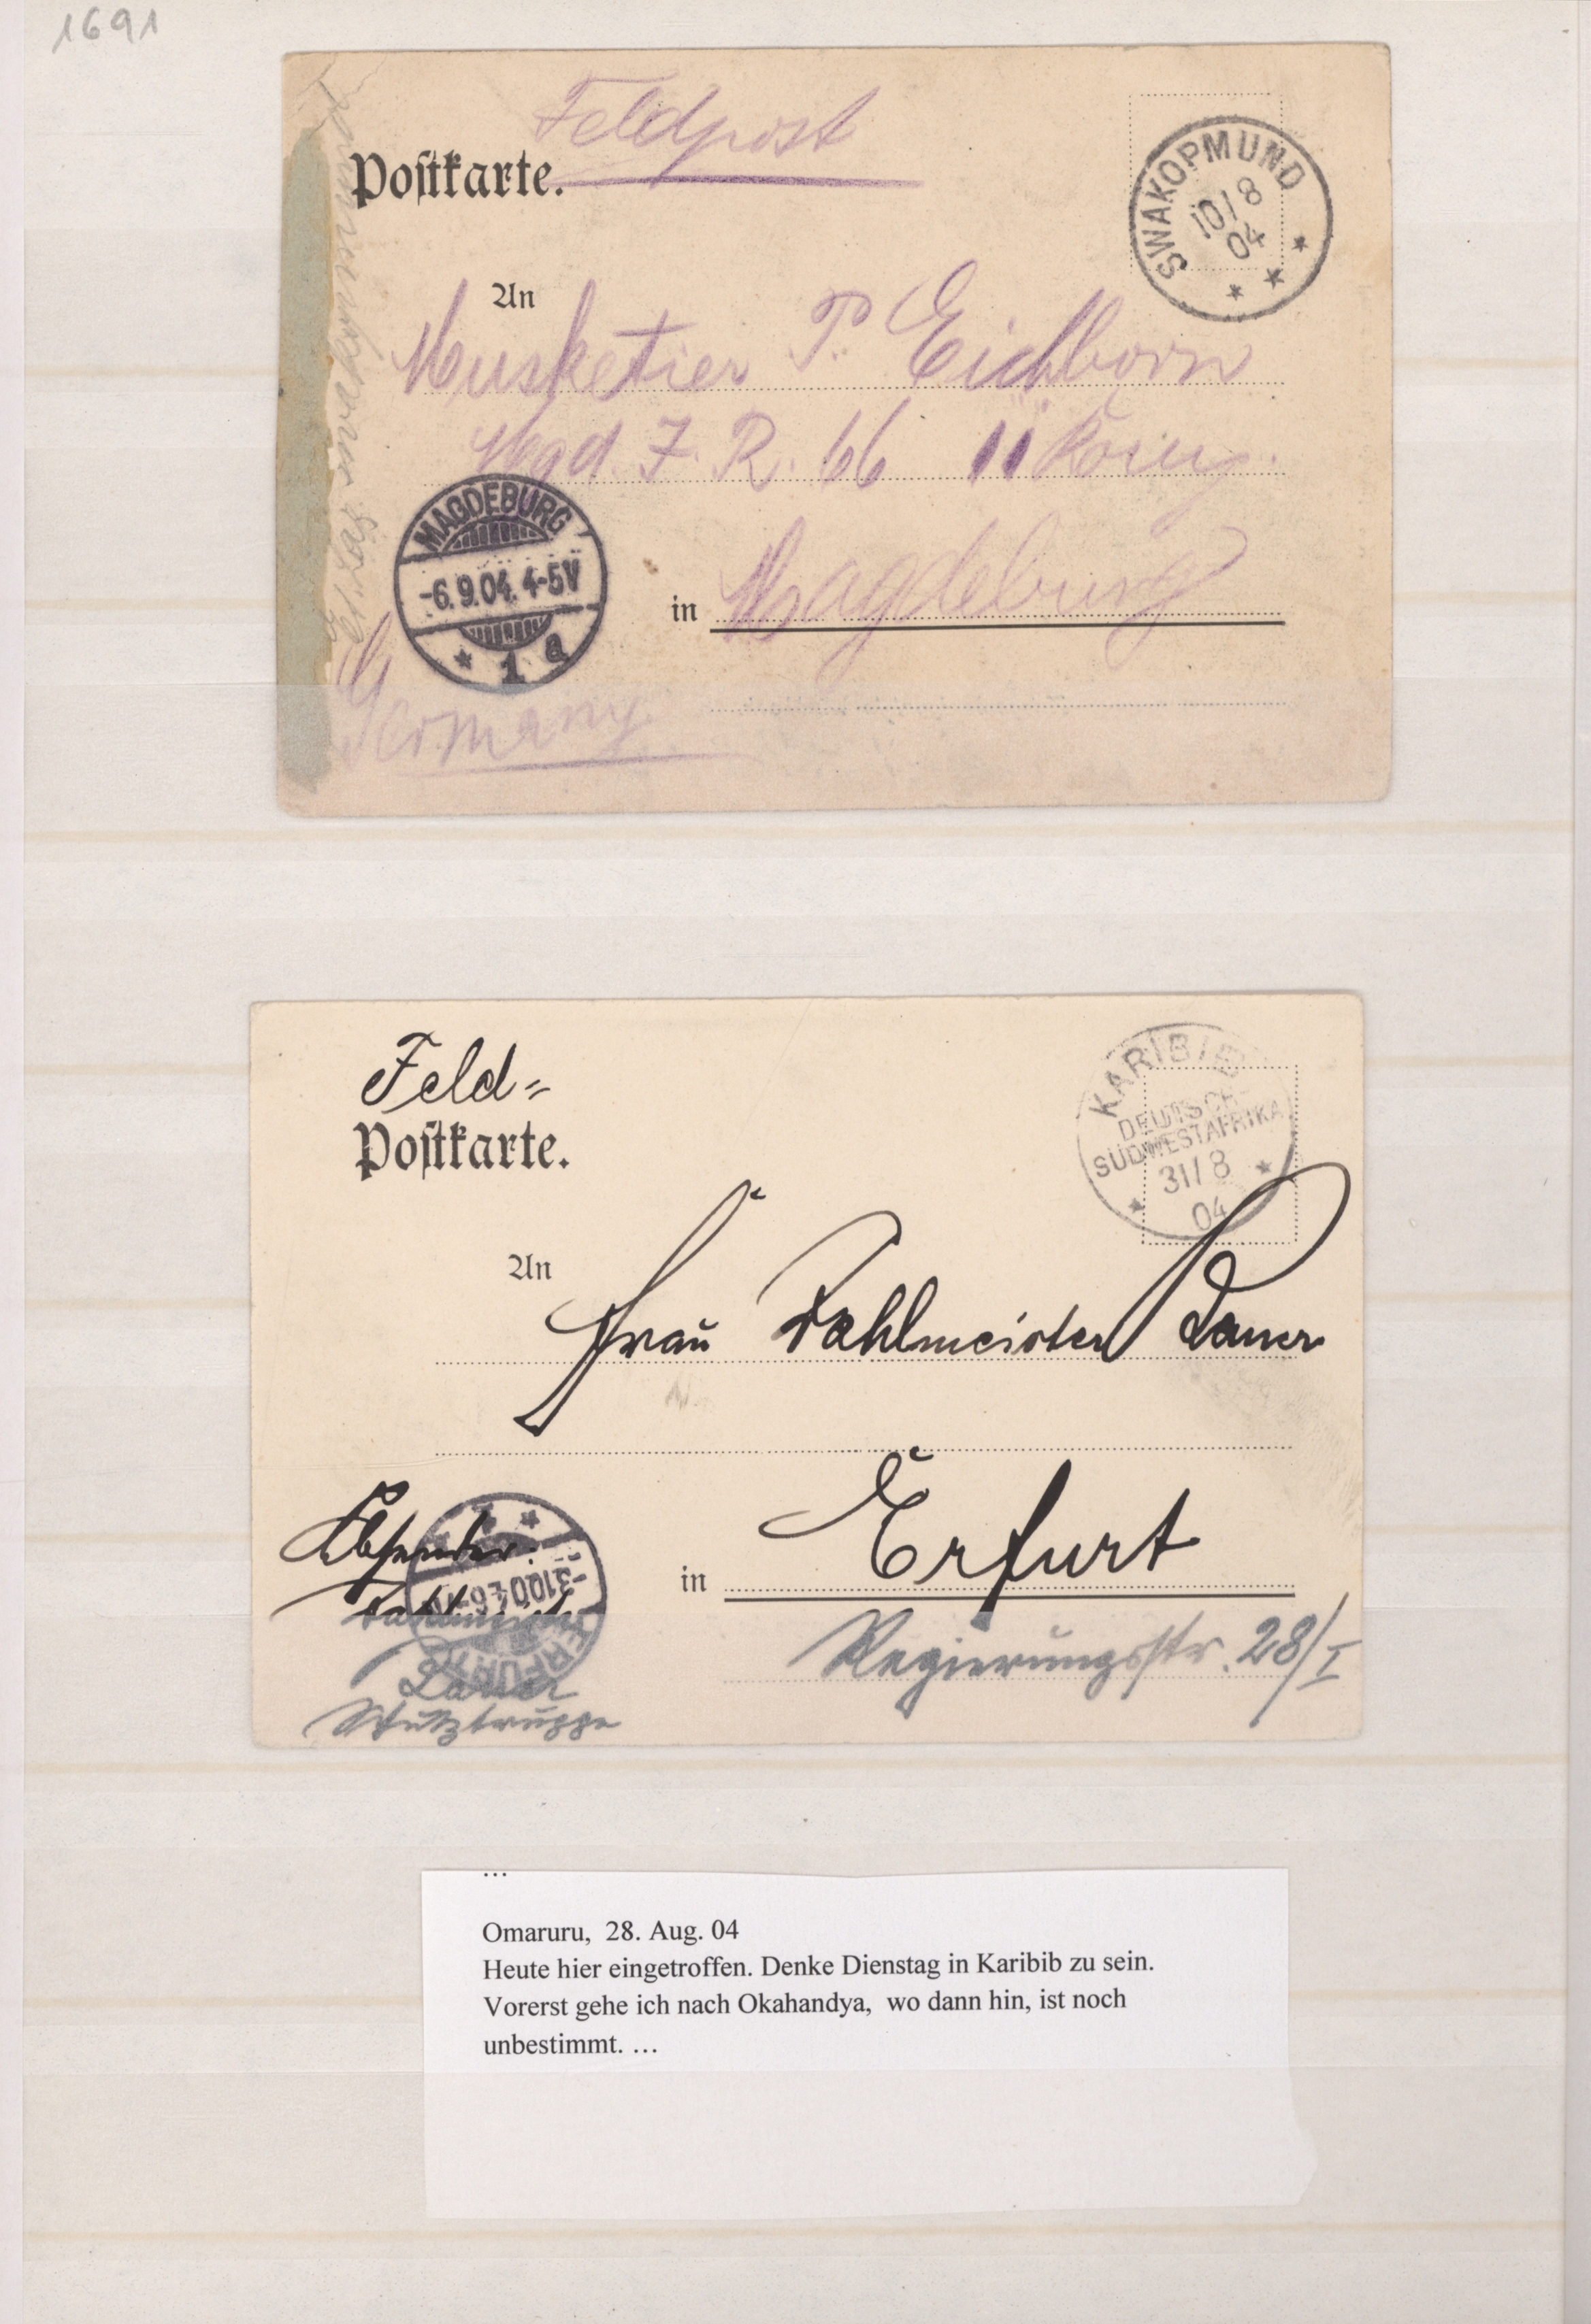 1691
Feldpost
Postkarte.
SWAKOPMUND
10/8
04
An
Musketier P. Eichborn
Mgd. I. R. 66 11 Komp.
MAGDEBURG
-6.9.04. 4-5V
1 a
in Magdeburg
Germany
Feld=
Postkarte.
KARIBIB
DEUTSCH-
SÜDWESTAFRIKA
31/8
04
An
Frau Zahlmeister Lauer
in Erfurt
Regierungsstr. 28/I
Absender:
Zahlmeister
Lauer
Schutztruppe
ERFURT
-3.10.04. 6-7
...
Omaruru, 28. Aug. 04
Heute hier eingetroffen. Denke Dienstag in Karibib zu sein.
Vorerst gehe ich nach Okahandya, wo dann hin, ist noch
unbestimmt. ...